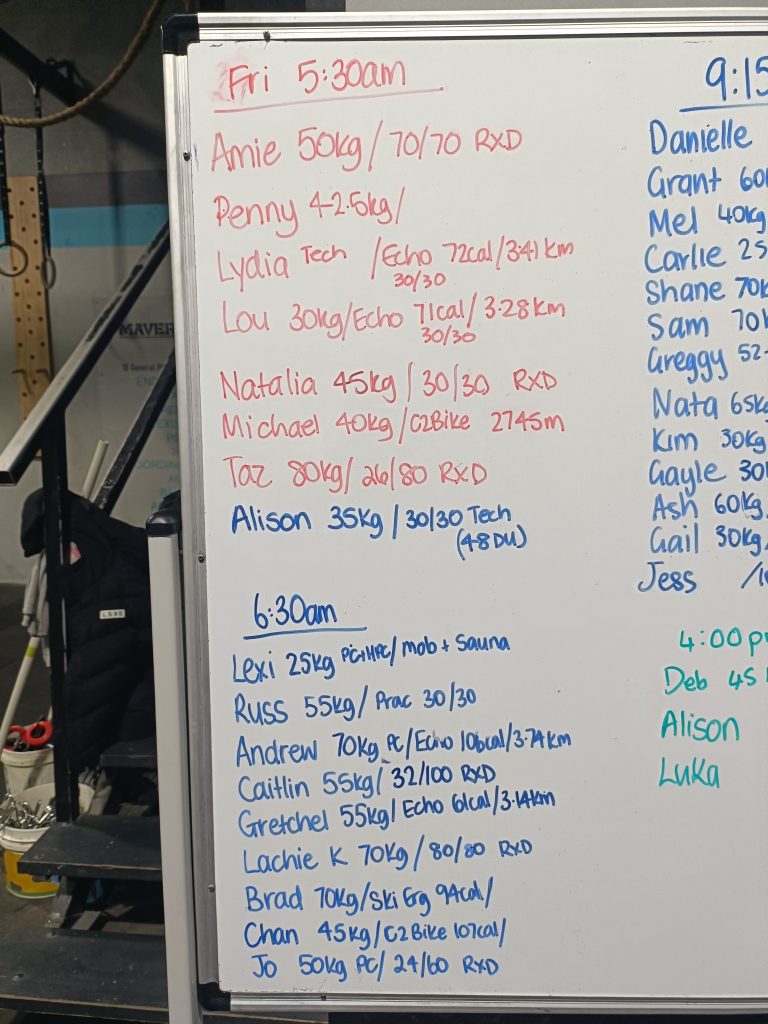 Fri 5:30am
Amie 50kg/70/70 RXD
Penny 42.5kg/
Lydia Tech /Echo 72cal/3.41km
30/30
Lou 30kg/Echo 71cal/3.28km
30/30
Natalia 45kg/30/30 RXD
Michael 40kg/C2Bike 2745m
Taz 80kg/26/80 RXD
Alison 35kg/30/30 Tech
(48DU)
6:30am
Lexi 25kg PC+HPC/mob + Sauna
Russ 55kg/Prac 30/30
Andrew 70kg PC/Echo 106cal/3.74km
Caitlin 55kg/32/100 RXD
Gretchel 55kg/Echo 61cal/3.14km
Lachie K 70kg/80/80 RXD
Brad 70kg/Ski Erg 94cal/
Chan 45kg/C2Bike 107cal/
Jo 50kg PC/24/60 RXD
9:15
Danielle
Grant 60k
Mel 40kg
Carlie 25
Shane 70k
Sam 70k
Greggy 52.
Nata 65kg
Kim 30kg
Gayle 30k
Ash 60kg/
Gail 30kg/
Jess /1
4:00p
Deb 45k
Alison
Luka
MAVER
LSKD